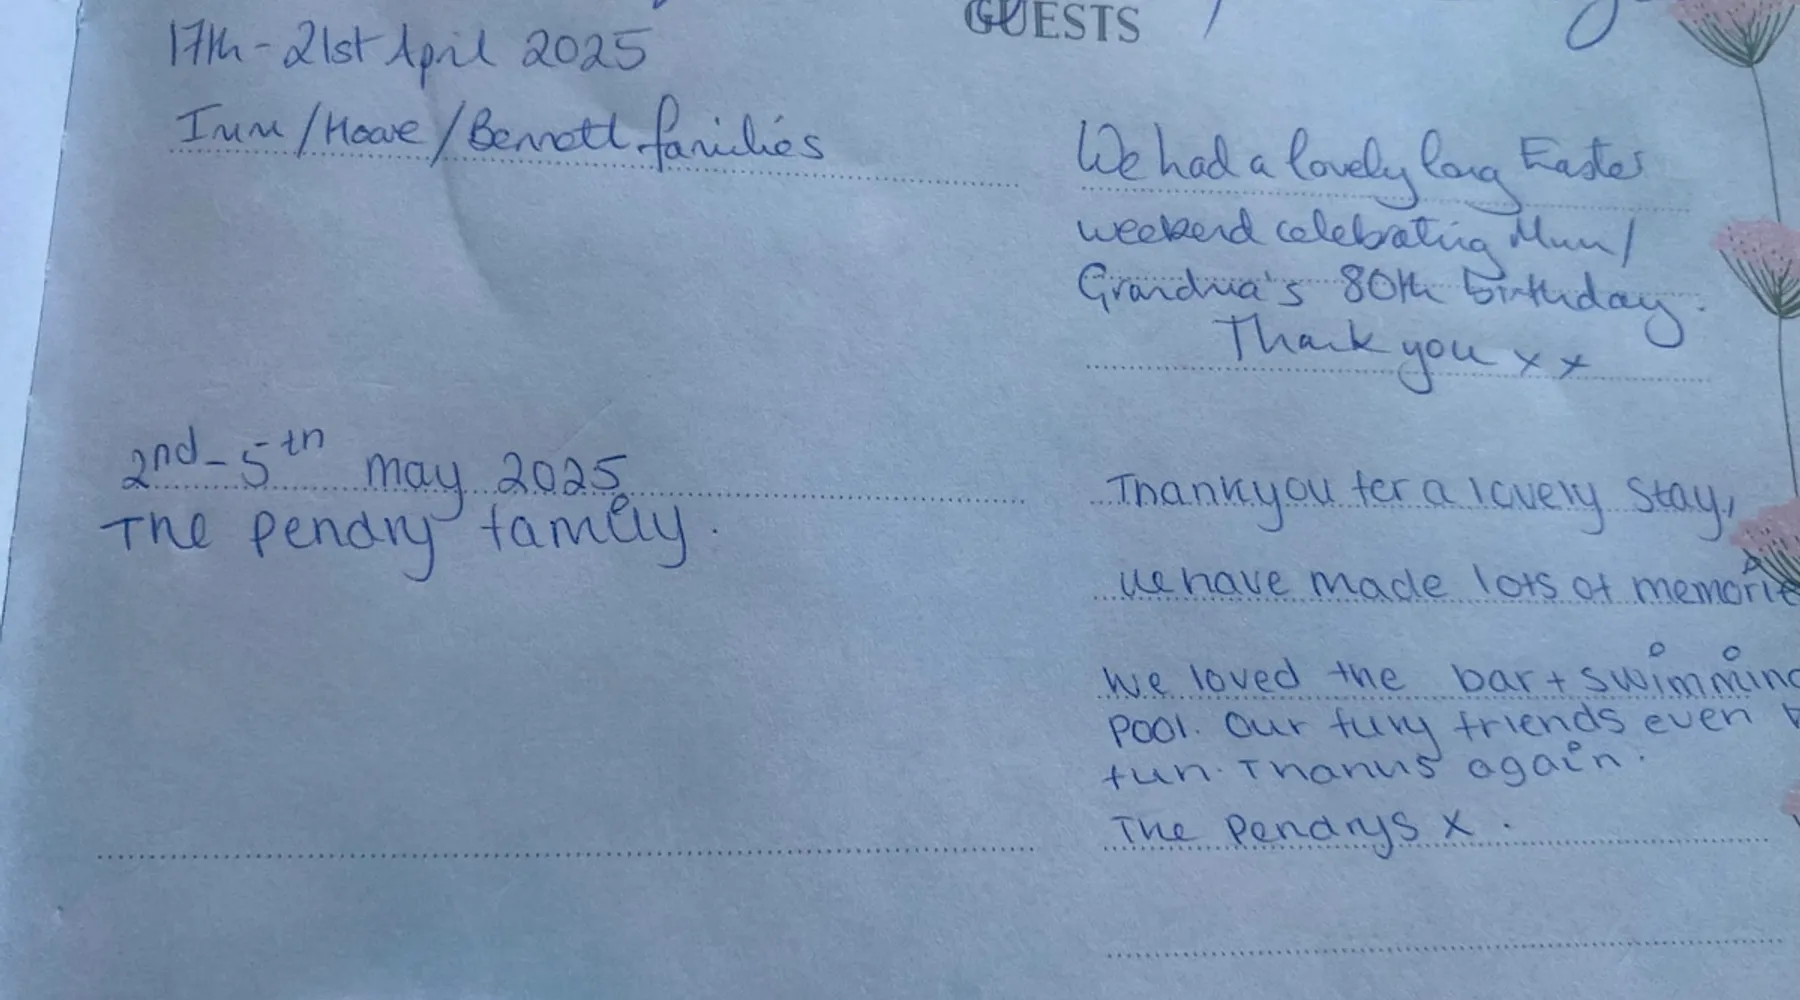 GUESTS
17th - 21st April 2025
Inm / Howe / Bennett families
We had a lovely long Easter
weekend celebrating Mum /
Grandma's 80th birthday.
Thank you x x
2nd - 5th may 2025
The Pendry family.
Thankyou for a lovely stay,
we have made lots of memorie
We loved the bar + swimming
pool. Our fury friends even
fun. Thanks again.
The Pendrys x.